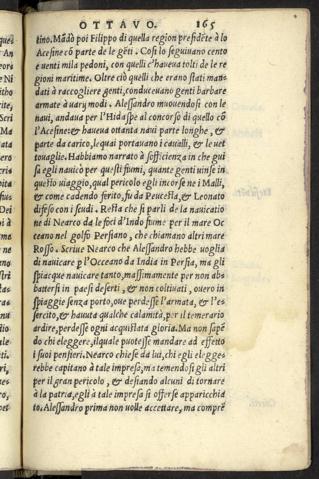 OTTAVO. 165
tino. Mãdò poi Filippo di quella region presidẽte à lo
Acesine cõ parte de le gẽti. Cosi lo seguivano cento
e venti mila pedoni, con quelli c'haveua tolti de le re
gioni maritime. Oltre ciò quelli che erano stati man-
dati à raccogliere genti, conducevano genti barbare
armate à varij modi. Alessandro muovendosi con le
navi, andaua per l'Hidaspe al concorso di quello cõ
l'Acesine: & haveua ottanta navi parte longhe, &
parte da carico, le quai portavano i cavalli, & le vet
tovaglie. Habbiamo narrato à sofficienza in che gui
sa egli navicò per questi fiumi, quante genti vinse in
questo viaggio, qual pericolo egli incorse ne i Malli,
& come cadendo ferito, fu da Peucesta, & Leonato
difeso con i scudi. Resta che si parli de la navicatio
ne di Nearco da le foci d'Indo fiume per il mare Oc
ceano nel golfo Persiano, che chiamano altri mare
Rosso. Scriue Nearco che Alessandro hebbe voglia
di navicare p l'Occeano da India in Persia, ma gli
spiacque navicare tanto, massimamente per non abs
battersi in paesi deserti, & non coltivati, overo in
spiaggie senza porto, oue perdesse l'armata, & l'es
sercito, & havuta qualche calamità, per il temerario
ardire, perdesse ogni acquistata gloria. Ma non sapẽ
do chi eleggere, ilquale potesse mandare ad effetto
i suoi pensieri. Nearco chiese da lui, chi egli elegge-
rebbe capitano à tale impresa, ma temendosi gli altri
per il gran pericolo, & desiando alcuni di tornare
à la patria, egli à tale impresa si offerse apparicchia
to. Alessandro prima non volle accettare, ma comprẽ